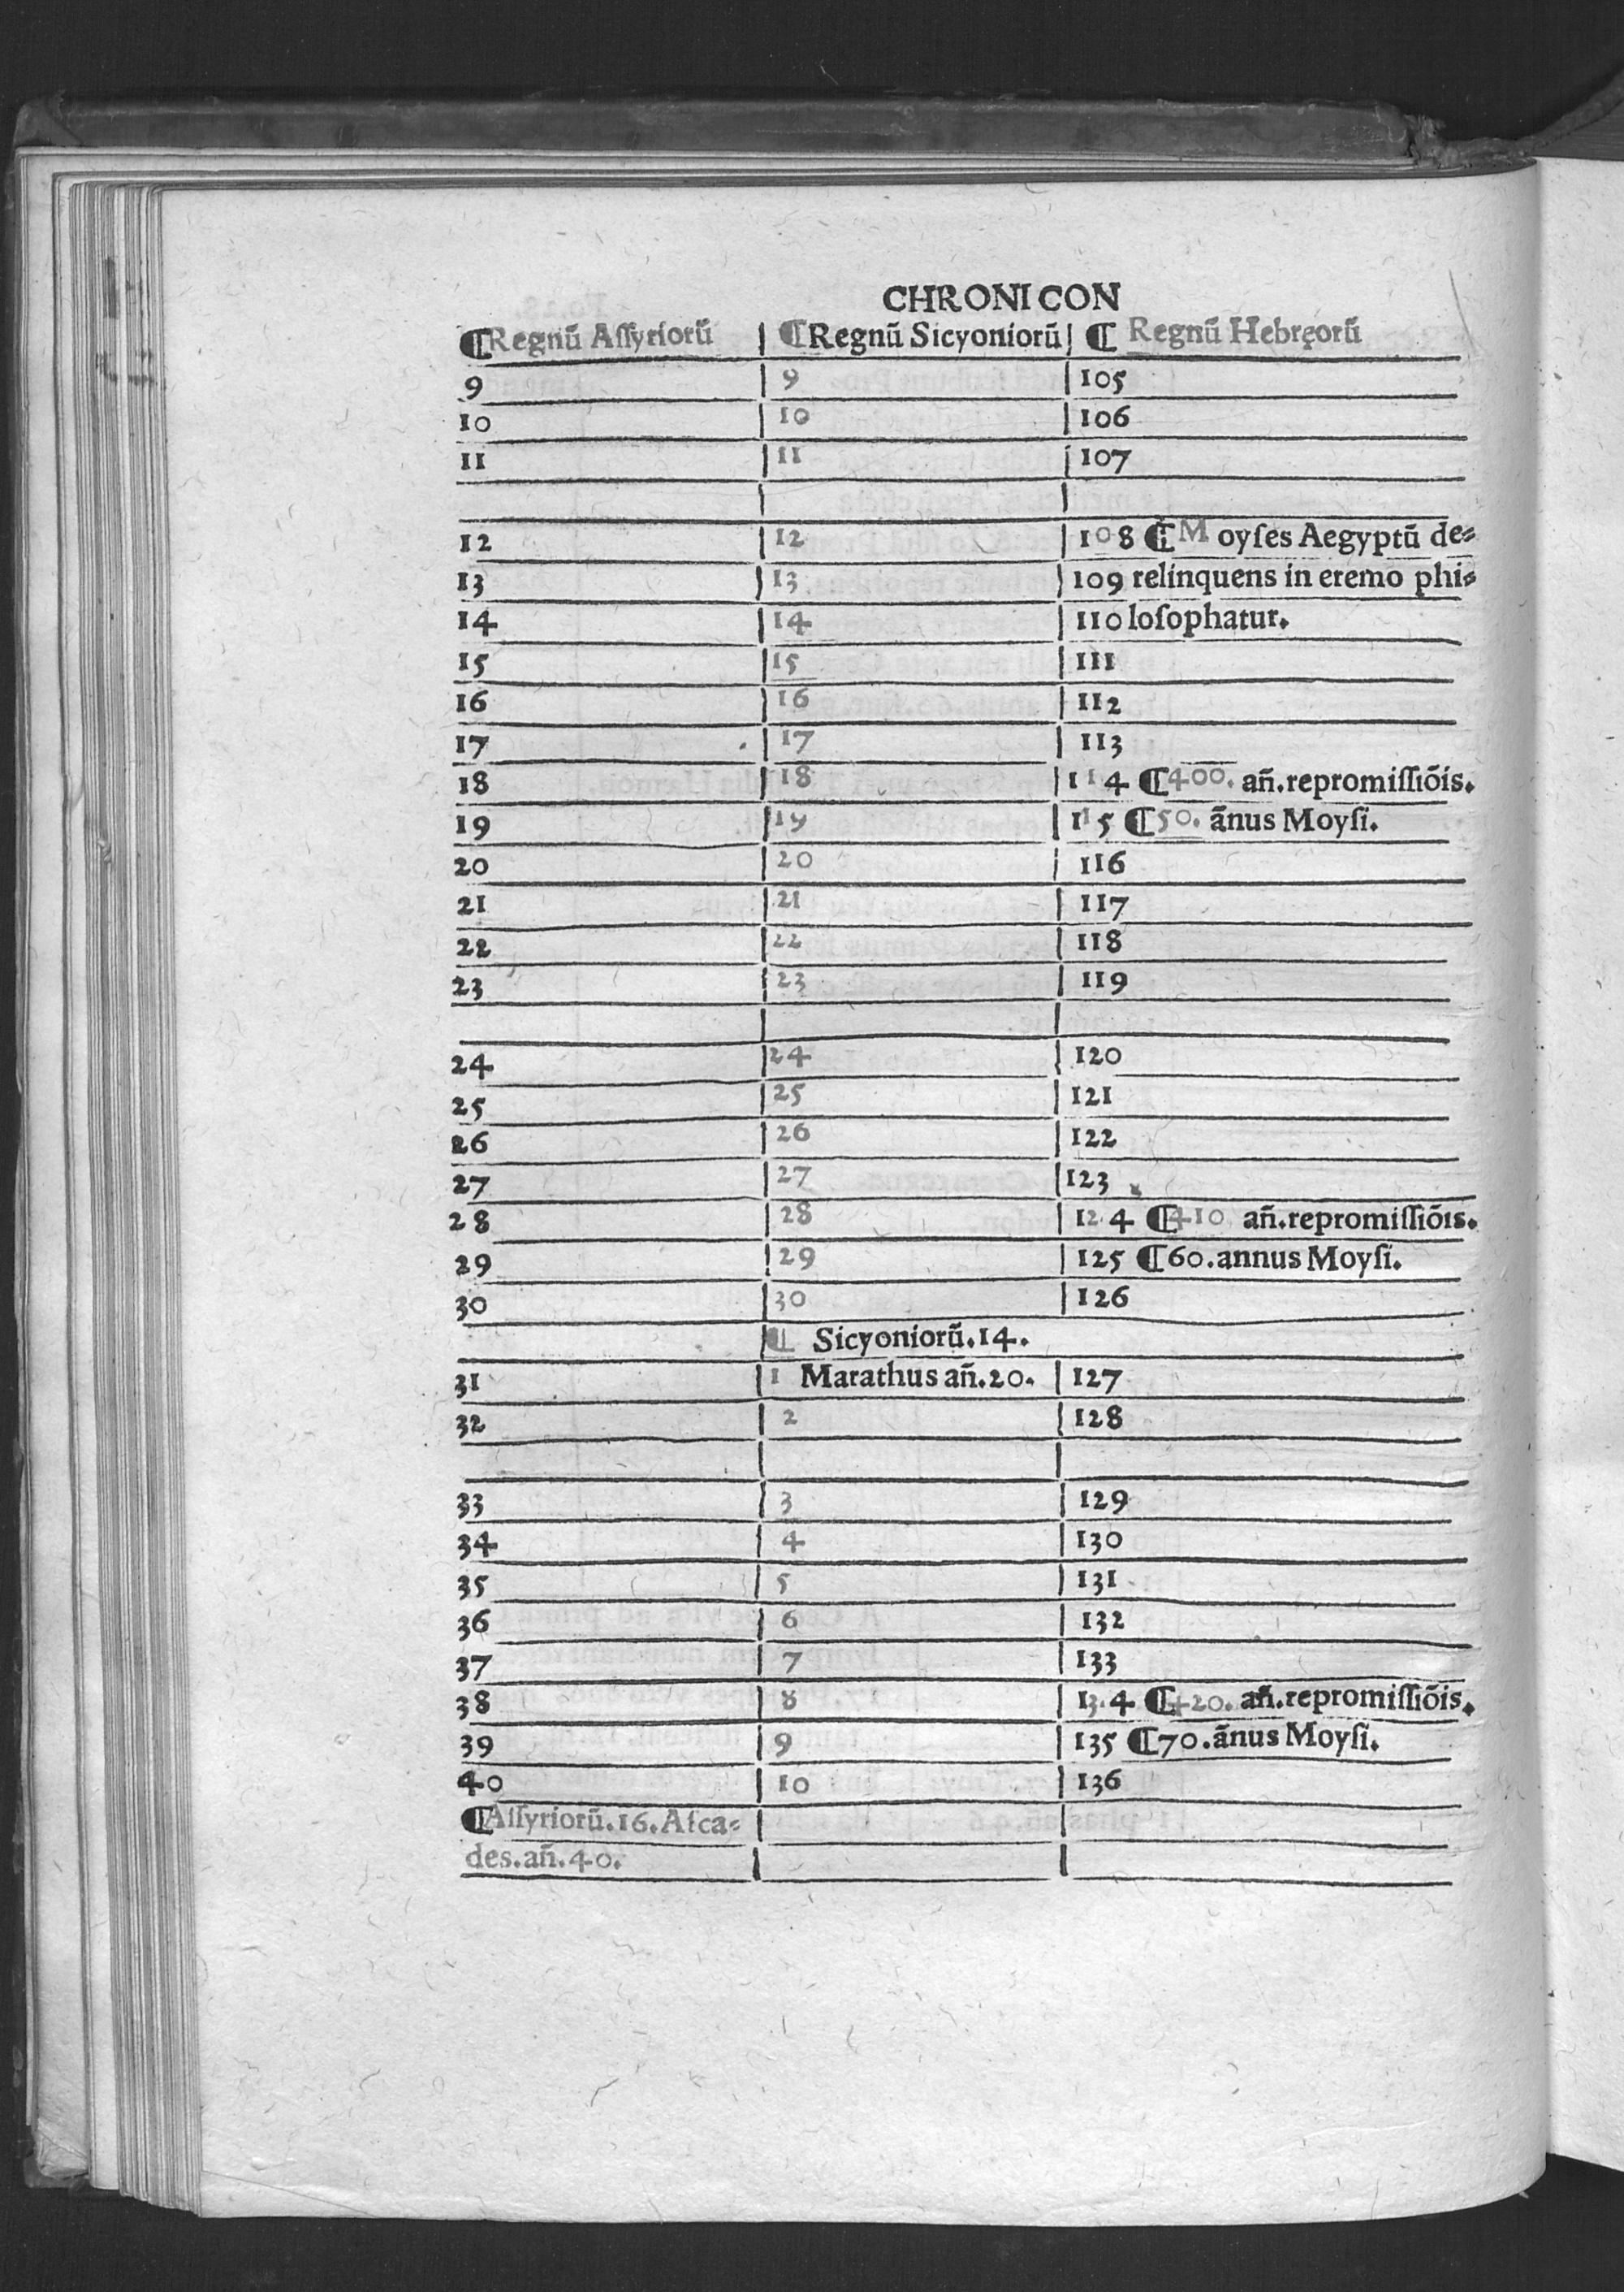 CHRONICON
¶Regnū Aſſyriorū | ¶Regnū Sicyoniorū | ¶ Regnū Hebręorū
9 | 9 | 105
10 | 10 | 106
11 | 11 | 107
12 | 12 | 108 ¶Moyſes Aegyptū de⸗
13 | 13 | 109 relinquens in eremo phi⸗
14 | 14 | 110 loſophatur.
15 | 15 | 111
16 | 16 | 112
17 | 17 | 113
18 | 18 | 114 ¶400. añ.repromiſſiōis.
19 | 19 | 115 ¶50. ānus Moyſi.
20 | 20 | 116
21 | 21 | 117
22 | 22 | 118
23 | 23 | 119
24 | 24 | 120
25 | 25 | 121
26 | 26 | 122
27 | 27 | 123
28 | 28 | 124 ¶410 añ.repromiſſiōis.
29 | 29 | 125 ¶60.annus Moyſi.
30 | 30 | 126
¶ Sicyoniorū.14.
31 | 1 Marathus añ.20. | 127
32 | 2 | 128
33 | 3 | 129
34 | 4 | 130
35 | 5 | 131
36 | 6 | 132
37 | 7 | 133
38 | 8 | 134 ¶420. añ.repromiſſiōis.
39 | 9 | 135 ¶70.ānus Moyſi.
40 | 10 | 136
¶Aſſyriorū.16.Aſca⸗
des.añ.40.